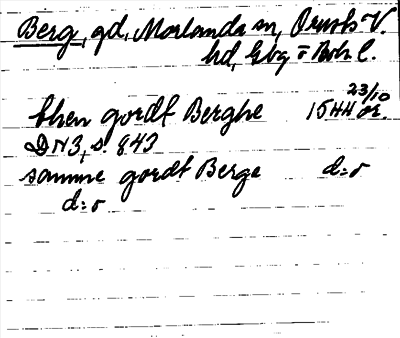 Berg, gd, Morlanda sn, Orusts V.
hd, Gbg o Boh l.
then gordt Berghe 1544 23/10 or.
DN 3, s. 843
samme gordt Berge d:o
d:o